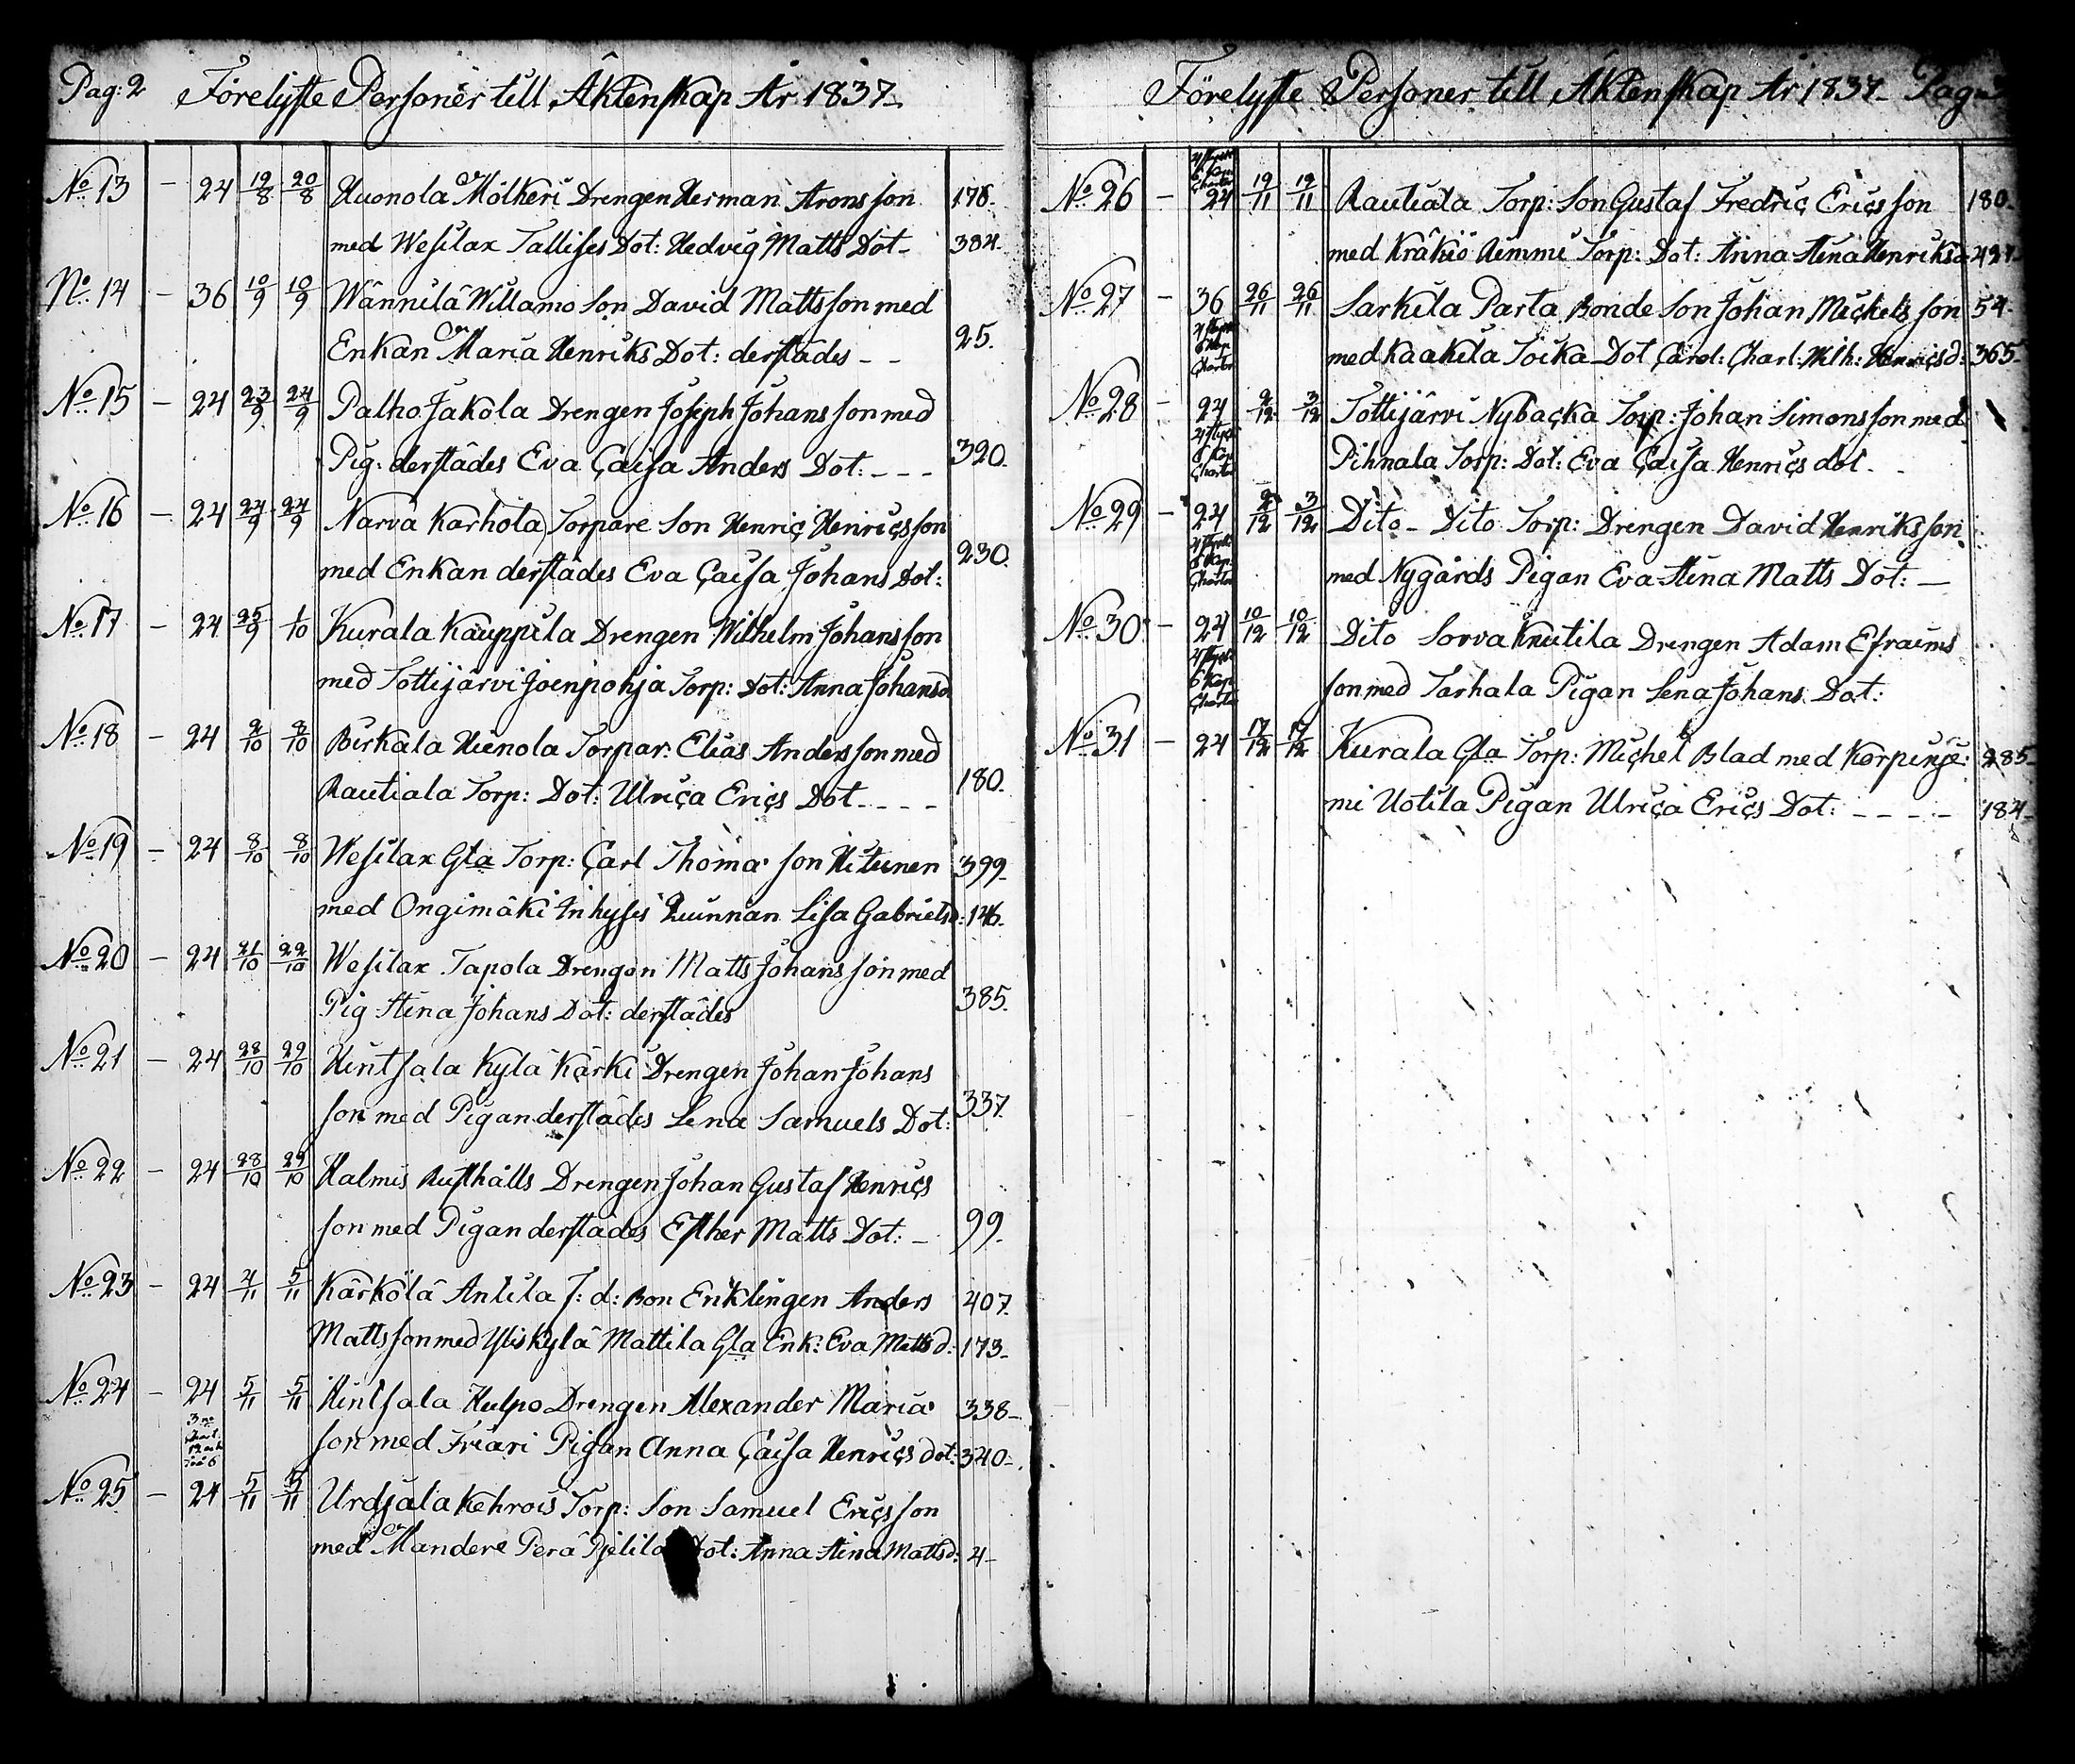 Pag: 2 Förelyste Personer till Äktenskap År 1837.
No 13 – 24 19/8 20/8 Huonola Mölkeri Drengen Herman Aronsson 178.
med Wesilax Tallises Dot: Hedvig Matts Dot– 384.
No 14 – 36 10/9 10/9 Wännilä Willamo son David Mattsson med
Enkan Maria Henriks Dot: derstädes – – 25.
No 15 – 24 23/9 24/9 Palho Jakola Drengen Joseph Johansson med
Pig: derstädes Eva Caisa Anders Dot: – – – 320.
No 16 – 24 24/9 24/9 Narva Karhola Torpare Son Henric Henricsson
med Enkan derstädes Eva Caisa Johans Dot: 230.
No 17 – 24 25/9 1/10 Kurala Kauppila Drengen Wilhelm Johansson
med Tottijärvi Joenpohja Torp: Dot: Anna Johansd
No 18 – 24 2/10 8/10 Birkala Hienola Torpar: Elias Andersson med
Rautiala Torp: Dot: Ulrica Erics Dot – – – – 180.
No 19 – 24 8/10 8/10 Wesilax Gla Torp: Carl Thoma son Hitunen 399.
med Ongimäki Inhyses Quinnan Lisa Gabrielsd: 146.
No 20 – 24 21/10 22/10 Wesilax Tapola Drengen Matts Johansson med
Pig Stina Johans Dot: derstädes 385.
No 21 – 24 28/10 29/10 Hintsala Kylä Kärki Drengen Johan Johans
son med Pigan derstädes Lena Samuels Dot: 337.
No 22 – 24 28/10 29/10 Halmis Rusthålls Drengen Johan Gustaf Henrics
son med Pigan derstädes Esther Matts Dot: – 99.
No 23 – 24 4/11 5/11 Kärkölä Anlila f: d: Bon Enklingen Anders 407.
Mattsson med Yliskylä Mattila Gla Enk: Eva Mattsd: 173–
No 24 – 24 5/11 5/11 Hintsala Hulpo Drengen Alexander Maria 338–
son med Friari Pigan Anna Caisa Henrics dot: 340–
No 25 – 24 5/11 5/11 Urdjala Kehrois Torp: Son Samuel Ericsson
med Mandere Perä Pjelila Dot: Anna Stina Mattsd: 4–
Förelyste Personer till Äktenskap År 1837– Pag:
No 26 – 24 19/11 19/11 Rautiala Torp: Son Gustaf Fredric Ericsson 180.
med Kräkiö Hemmi Torp: Dot: Anna Stina Henriksd
No 27 – 36 26/11 26/11 Sarkila Parta Bonde Son Johan Michelsson 54.
med Kaakila Toika Dot Carol: Charl: Wilh: Henricsd: 365–
No 28 – 24 2/12 3/12 Tottijärvi Nybacka Torp: Johan Simonsson med
Pihnala Torp: Dot: Eva Caisa Henrics dot –
No 29 – 24 2/12 3/12 Dito – Dito Torp: Drengen David Henriksson
med Nygårds Pigan Eva Stina Matts Dot: –
No 30 – 24 10/12 10/12 Dito Sorva Knutila Drengen Adam Efraims
son med Sarhala Pigan Lena Johans Dot:
No 31 – 24 17/12 17/12 Kurala Gla Torp: Michel Blad med Korpinje: 285–
mi Uotila Pigan Ulrica Erics Dot: – – – – 184–